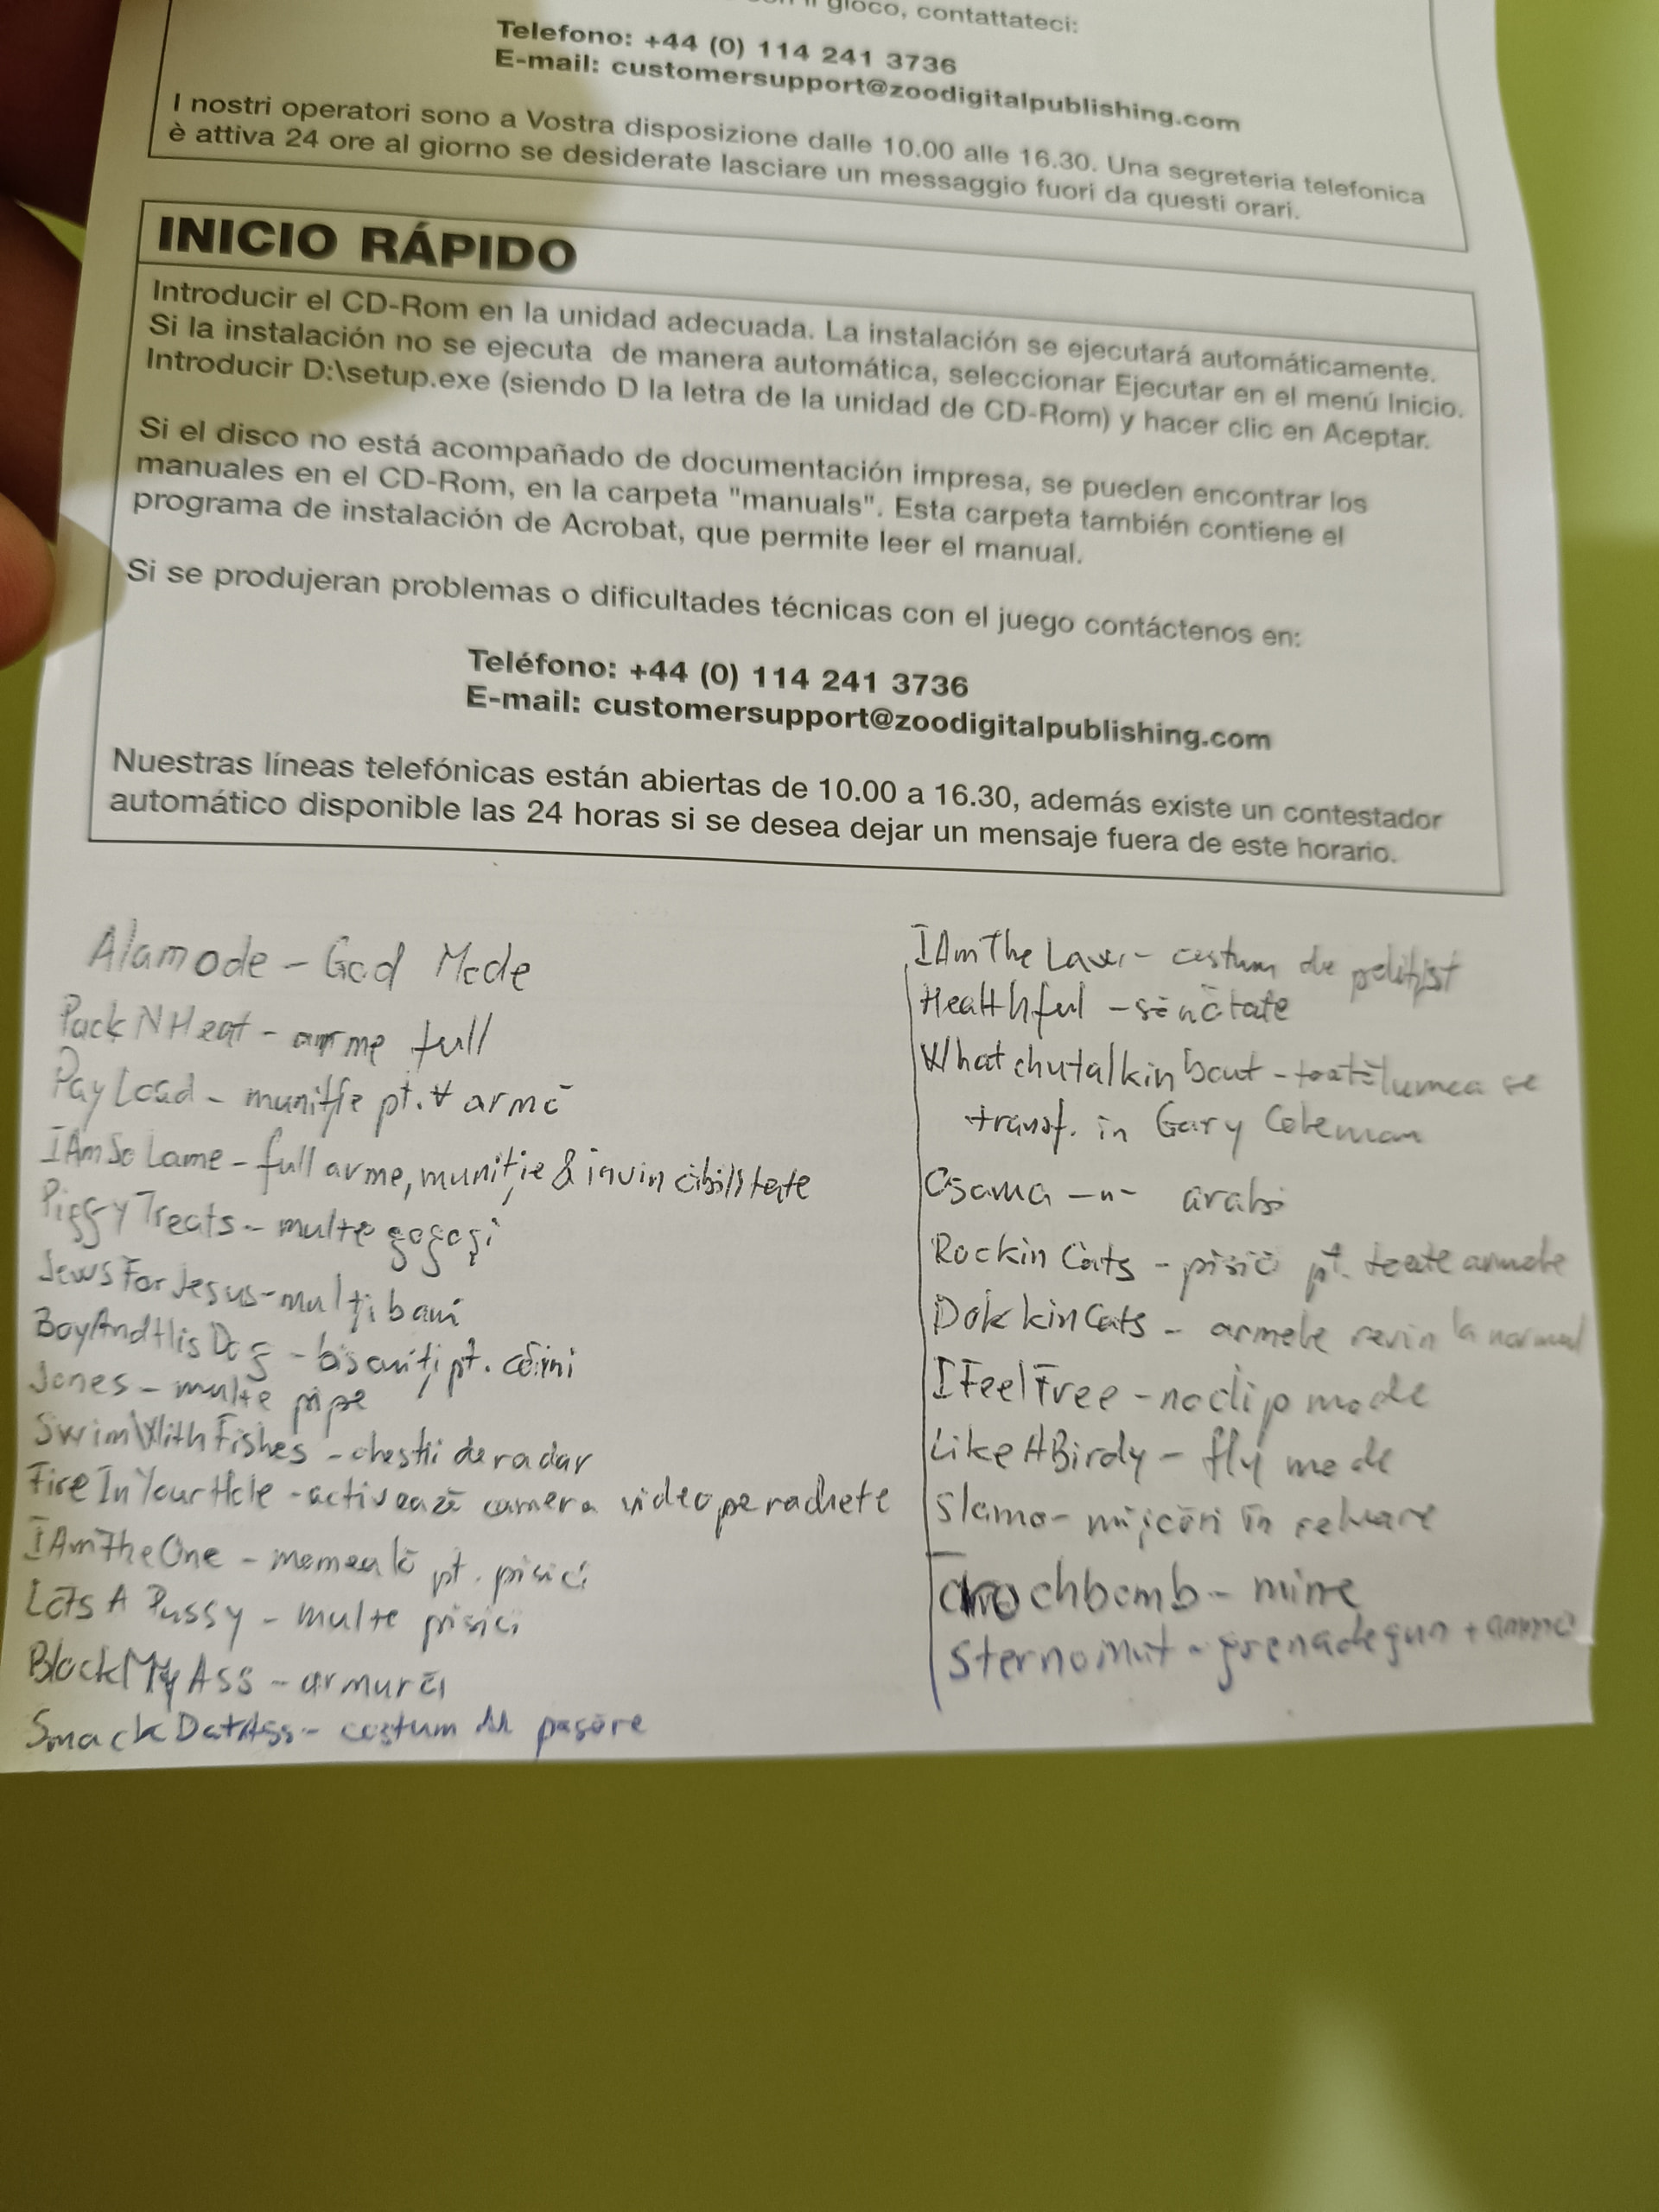 gioco, contattateci:
Telefono: +44 (0) 114 241 3736
E-mail: customersupport@zoodigitalpublishing.com
I nostri operatori sono a Vostra disposizione dalle 10.00 alle 16.30. Una segreteria telefonica
è attiva 24 ore al giorno se desiderate lasciare un messaggio fuori da questi orari.
INICIO RÁPIDO
Introducir el CD-Rom en la unidad adecuada. La instalación se ejecutará automáticamente.
Si la instalación no se ejecuta de manera automática, seleccionar Ejecutar en el menú Inicio.
Introducir D:\setup.exe (siendo D la letra de la unidad de CD-Rom) y hacer clic en Aceptar.
Si el disco no está acompañado de documentación impresa, se pueden encontrar los
manuales en el CD-Rom, en la carpeta "manuals". Esta carpeta también contiene el
programa de instalación de Acrobat, que permite leer el manual.
Si se produjeran problemas o dificultades técnicas con el juego contáctenos en:
Teléfono: +44 (0) 114 241 3736
E-mail: customersupport@zoodigitalpublishing.com
Nuestras líneas telefónicas están abiertas de 10.00 a 16.30, además existe un contestador
automático disponible las 24 horas si se desea dejar un mensaje fuera de este horario.
Alamode - God Mode
PackNHeat - arme full
PayLoad - muniție pt. ∀ armă
IAmSoLame - full arme, muniție & invincibilitate
PiggyTreats - multe gogoși
JewsForJesus - mulți bani
BoyAndHisDog - biscuiți pt. câini
Jones - multe pipe
SwimWithFishes - chestii de radar
FireInYourHole - activează camera video pe rachete
IAmTheOne - momeală pt. pisici
LotsAPussy - multe pisici
BlockMyAss - armură
SmackDatAss - costum de pasăre
IAmTheLaw - costum de polițist
Healthful - sănătate
Whatchutalkinbout - toată lumea se
transf. in Gary Coleman
Osama -"- arabi
RockinCats - pisică pt. toate armele
DokkinCats - armele revin la normal
IFeelFree - noclip mode
LikeABirdy - fly mode
Slamo - mișcări în reluare
chbomb - mine
Sternomut - grenadegun + ammo